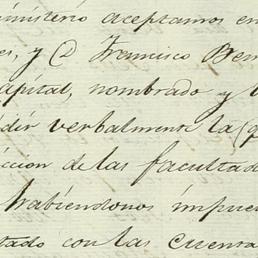 ministerio aceptamos en
es, y D Francisco Ber
apital, nombrado y
dir verbalmente la
iccion de las facultad
habiéndonos impue
tado con las cuenta